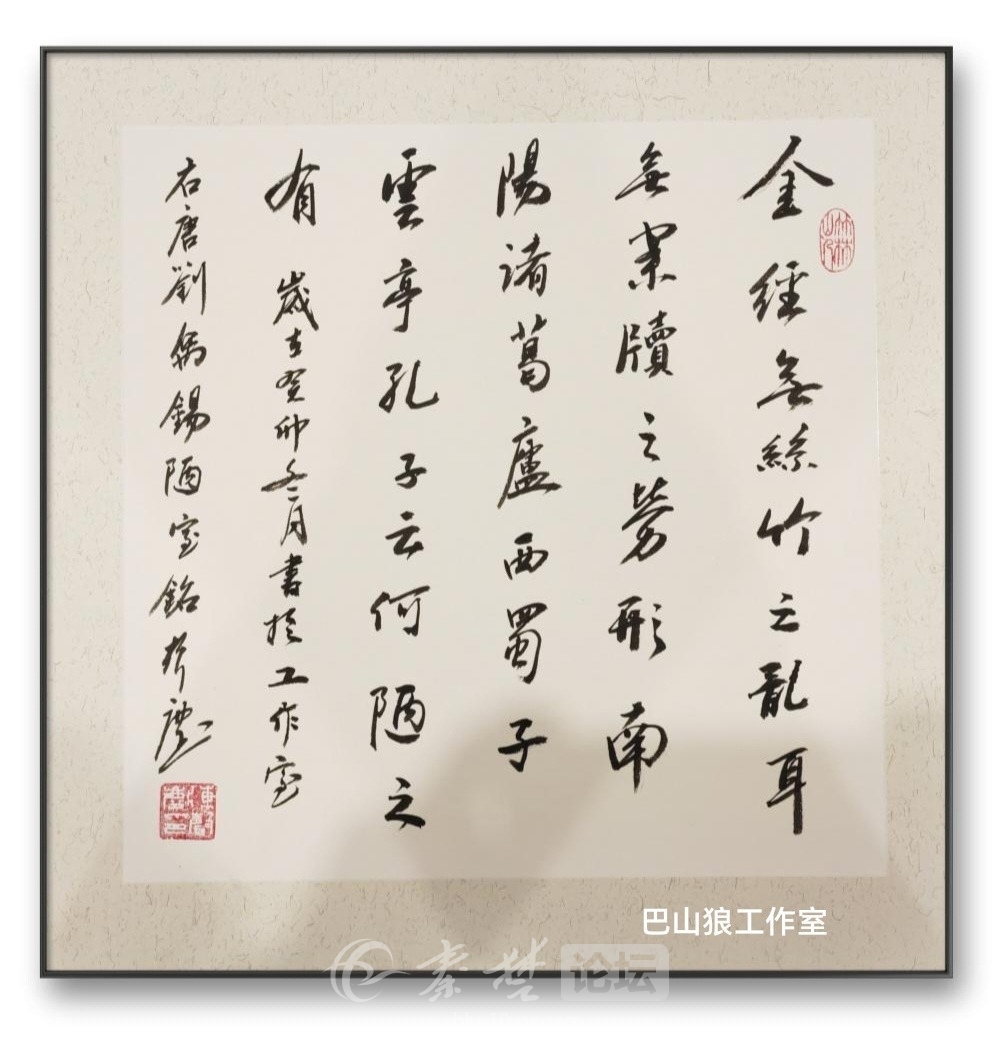 金經無絲竹之亂耳
無案牘之勞形南
陽諸葛廬西蜀子
雲亭孔子云何陋之
有 歲在癸卯冬月書於工作室
右唐劉禹錫陋室銘
巴山狼工作室
秦楚论坛